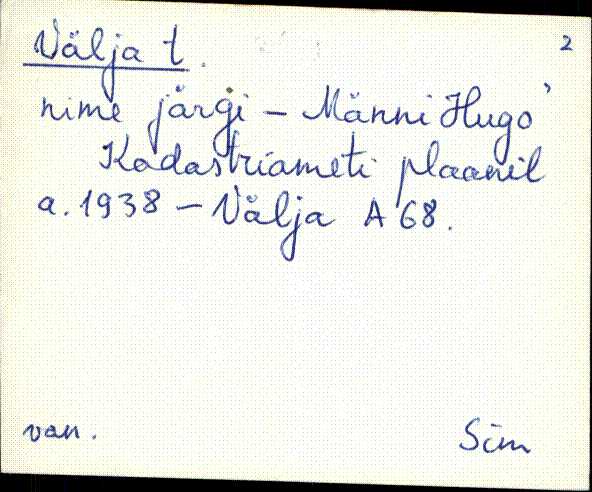 2
Välja t.
nime järgi – Männi Hugo'
Kadastriameti plaanil
a. 1938 – Välja A 68.
van. Sim